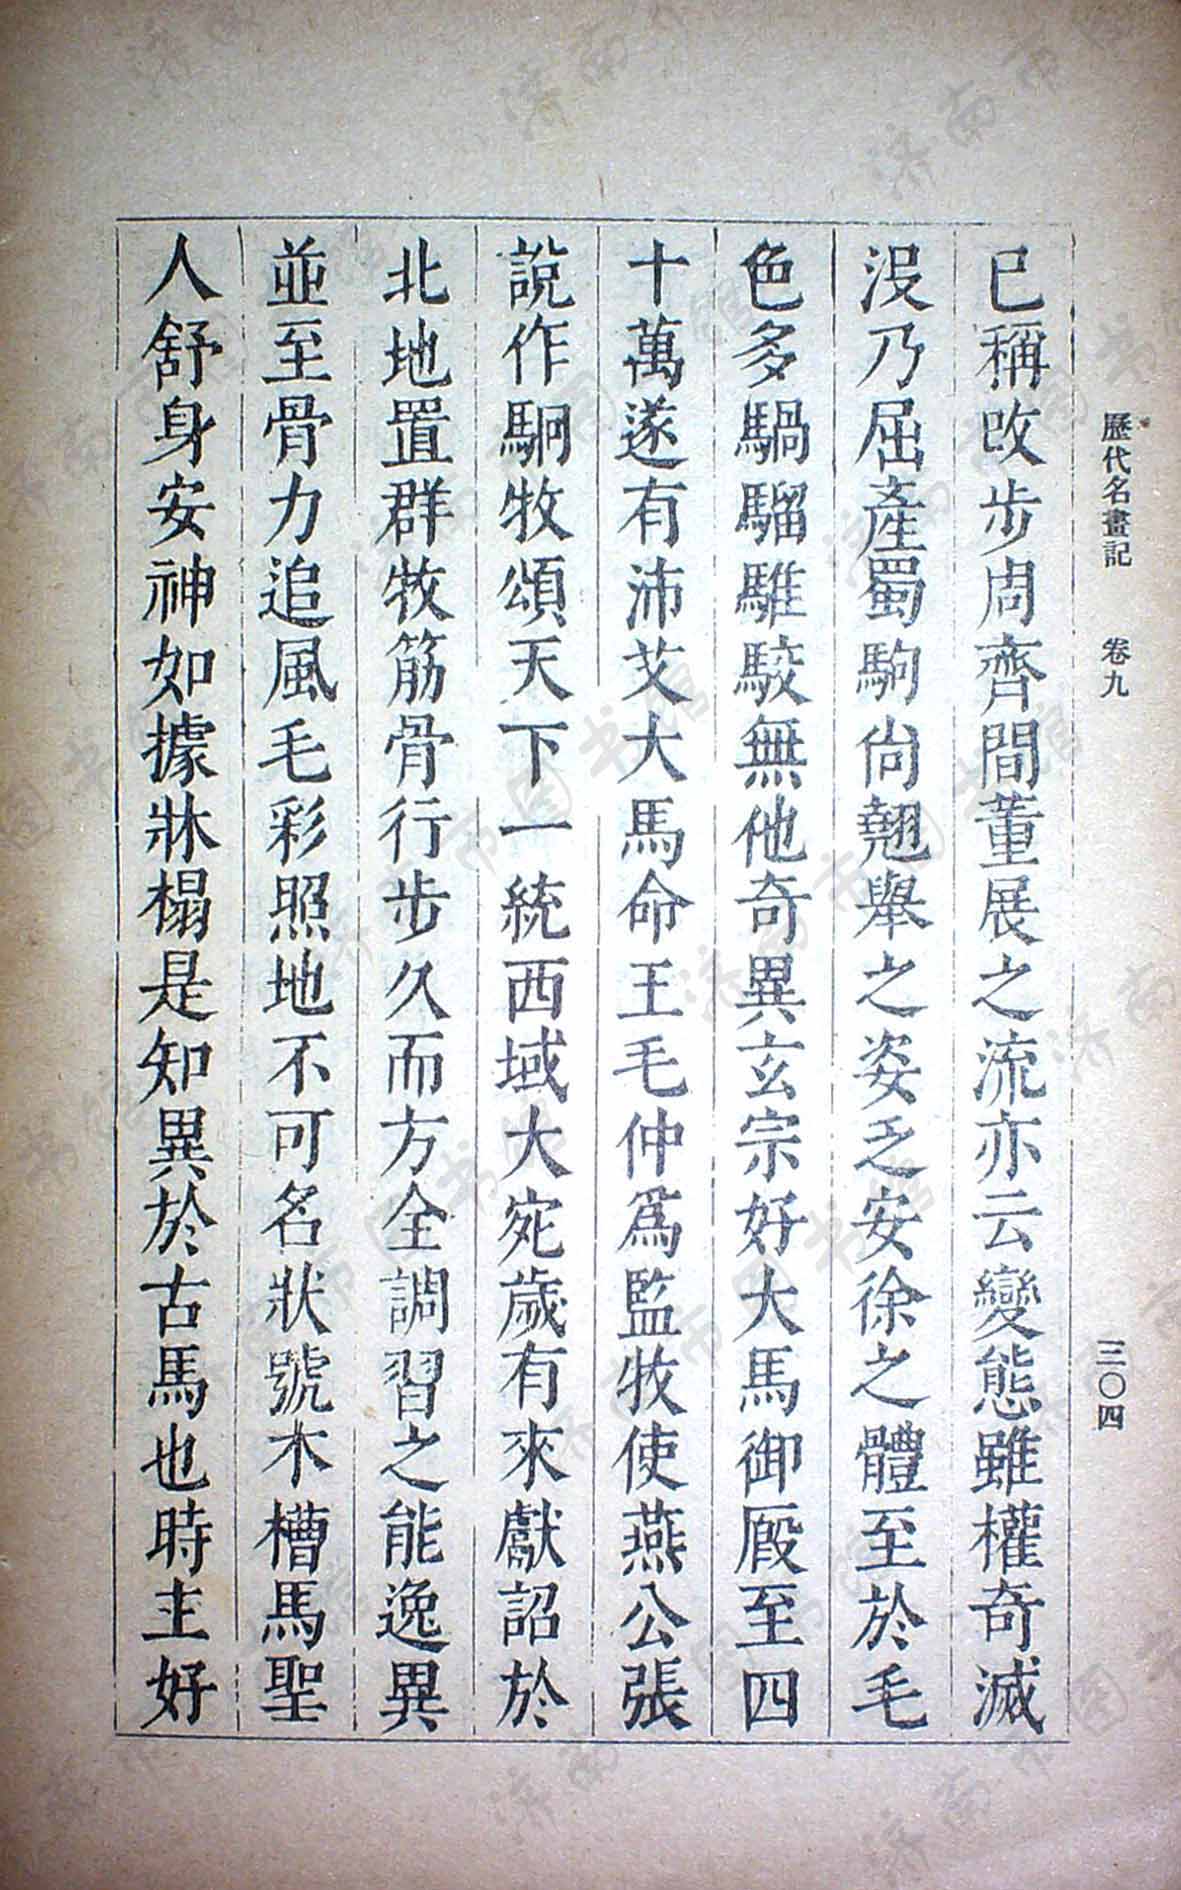 歷代名畫記　卷九　三〇四
已稱改步周齊間董展之流亦云變態雖權奇滅
沒乃屈產蜀駒尚翹舉之姿乏安徐之體至於毛
色多騧騮騅駮無他奇異玄宗好大馬御廄至四
十萬遂有沛艾大馬命王毛仲爲監牧使燕公張
說作駉牧頌天下一統西域大宛歲有來獻詔於
北地置群牧筋骨行步久而方全調習之能逸異
並至骨力追風毛彩照地不可名狀號木槽馬聖
人舒身安神如據牀榻是知異於古馬也時主好
济南市图书馆